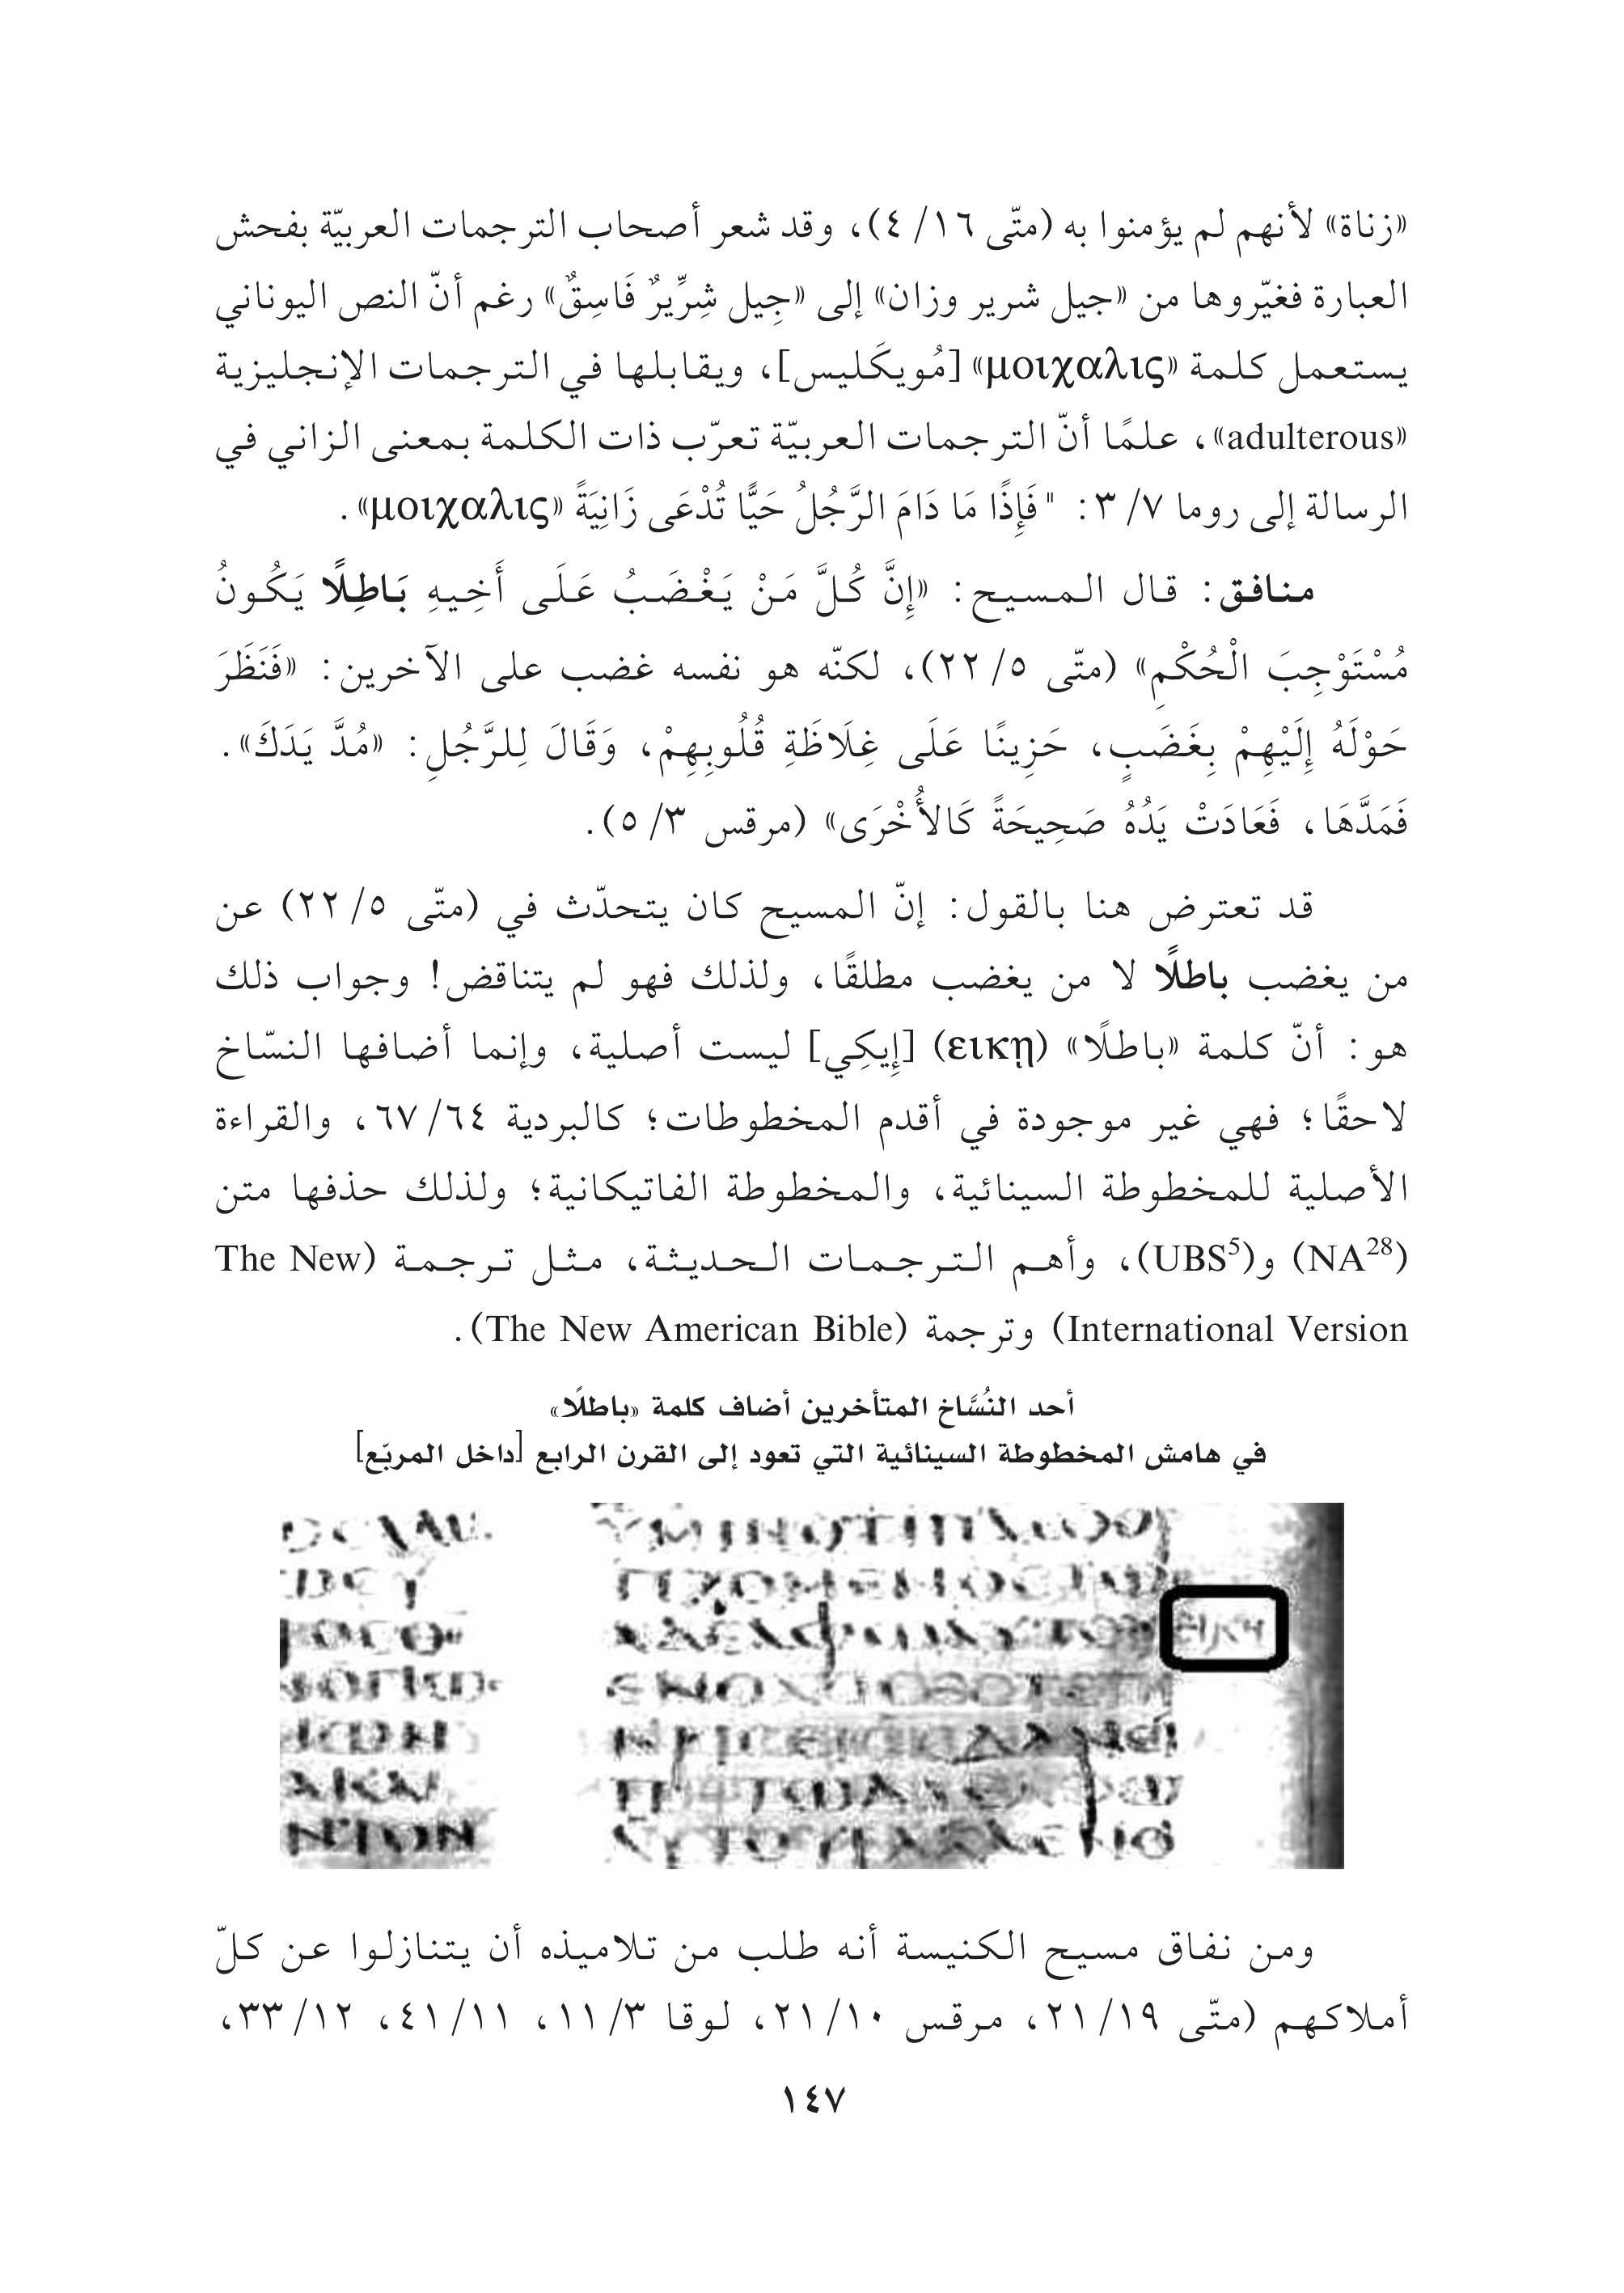 «زناة» لأنهم لم يؤمنوا به (متّى ١٦/ ٤)، وقد شعر أصحاب الترجمات العربيّة بفحش
العبارة فغيّروها من «جيل شرير وزان» إلى «جِيل شِرِّيرٌ فَاسِقٌ» رغم أنّ النص اليوناني
يستعمل كلمة «μοιχαλις» [مُويكَليس]، ويقابلها في الترجمات الإنجليزية
«adulterous»، علمًا أنّ الترجمات العربيّة تعرّب ذات الكلمة بمعنى الزاني في
الرسالة إلى روما ٧/ ٣: " فَإِذًا مَا دَامَ الرَّجُلُ حَيًّا تُدْعَى زَانِيَةً «μοιχαλις».
منافق: قال المسيح: «إِنَّ كُلَّ مَنْ يَغْضَبُ عَلَى أَخِيهِ بَاطِلًا يَكُونُ
مُسْتَوْجِبَ الْحُكْمِ» (متّى ٥/ ٢٢)، لكنّه هو نفسه غضب على الآخرين: «فَنَظَرَ
حَوْلَهُ إِلَيْهِمْ بِغَضَبٍ، حَزِينًا عَلَى غِلَاظَةِ قُلُوبِهِمْ، وَقَالَ لِلرَّجُلِ: «مُدَّ يَدَكَ».
فَمَدَّهَا، فَعَادَتْ يَدُهُ صَحِيحَةً كَالأُخْرَى» (مرقس ٣/ ٥).
قد تعترض هنا بالقول: إنّ المسيح كان يتحدّث في (متّى ٥/ ٢٢) عن
من يغضب باطلًا لا من يغضب مطلقًا، ولذلك فهو لم يتناقض! وجواب ذلك
هو: أنّ كلمة «باطلًا» (εικῃ) [إِيكِي] ليست أصلية، وإنما أضافها النسّاخ
لاحقًا؛ فهي غير موجودة في أقدم المخطوطات؛ كالبردية ٦٤/ ٦٧، والقراءة
الأصلية للمخطوطة السينائية، والمخطوطة الفاتيكانية؛ ولذلك حذفها متن
(NA²⁸) و(UBS⁵)، وأهم الترجمات الحديثة، مثل ترجمة (The New
International Version) وترجمة (The New American Bible).
أحد النُسَّاخ المتأخرين أضاف كلمة «باطلًا»
في هامش المخطوطة السينائية التي تعود إلى القرن الرابع [داخل المربّع]
ومن نفاق مسيح الكنيسة أنه طلب من تلاميذه أن يتنازلوا عن كلّ
أملاكهم (متّى ١٩/ ٢١، مرقس ١٠/ ٢١، لوقا ٣/ ١١، ١١/ ٤١، ١٢/ ٣٣،
١٤٧